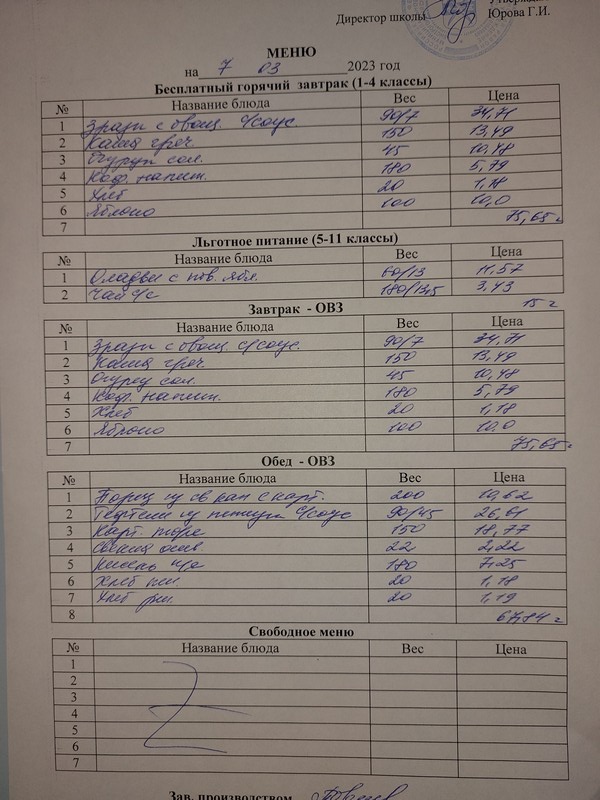 Утверждаю
Директор школы Юрова Г.И.
МЕНЮ
на 7 03 2023 год
Бесплатный горячий завтрак (1-4 классы)
№ Название блюда Вес Цена
1 Зразы с овощ. с/соус. 90/7 34,71
2 Каша греч. 150 13,49
3 Огурец сол. 45 10,48
4 Коф. напит. 180 5,79
5 Хлеб 20 1,18
6 Яблоко 100 10,0
7 75,65
Льготное питание (5-11 классы)
№ Название блюда Вес Цена
1 Оладьи с пов. ябл. 60/13 11,57
2 Чай с/с 180/13,5 3,43
15 г
Завтрак - ОВЗ
№ Название блюда Вес Цена
1 Зразы с овощ. с/соус. 90/7 34,71
2 Каша греч. 150 13,49
3 Огурец сол. 45 10,48
4 Коф. напит. 180 5,79
5 Хлеб 20 1,18
6 Яблоко 100 10,0
7 75,65
Обед - ОВЗ
№ Название блюда Вес Цена
1 Борщ из св кап с карт. 200 10,62
2 Тефтели из с/соус 90/45 26,61
3 Карт. пюре 150 18,77
4 22 2,22
5 Кисель 180 7,25
6 Хлеб пш. 20 1,18
7 Хлеб рж. 20 1,19
8 67,84
Свободное меню
№ Название блюда Вес Цена
1
2
3
4
5
6
7
Зав. производством